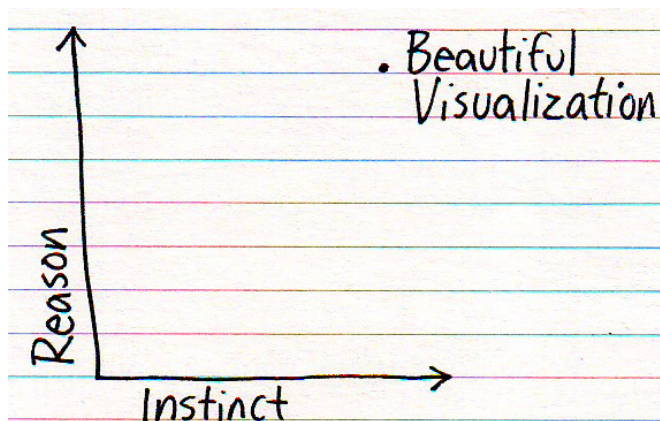 Beautiful
Visualization
Reason
Instinct